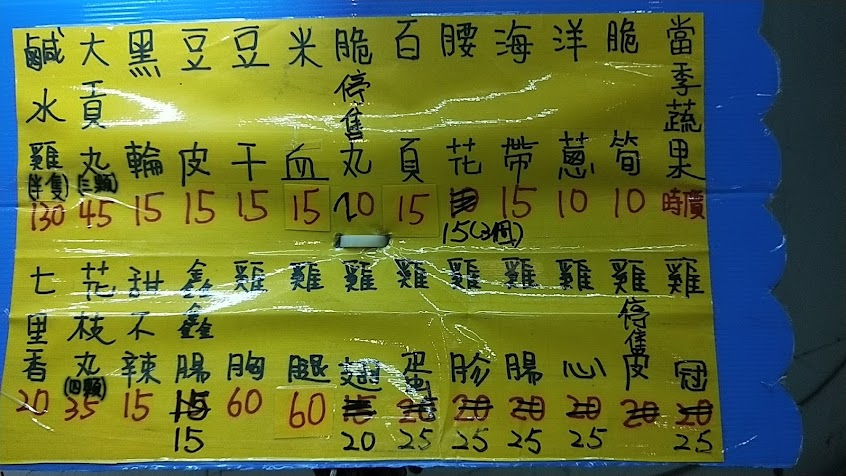 當季蔬果 時價
脆筍 10
洋蔥 10
海帶 15
腰花 15
百頁 15
脆丸 停售 20
米血 15
豆干 15
豆皮 15
黑輪 15
大貢丸(三顆) 45
鹹水雞(半隻) 130
雞冠 20 25
雞皮 停售 20
雞心 20 25
雞腸 20 25
雞胗 20 25
雞 25
雞翅 15 20
雞腿 60
雞胸 60
鑫鑫腸 15 15
甜不辣 15
花枝丸(四顆) 35
七里香 20